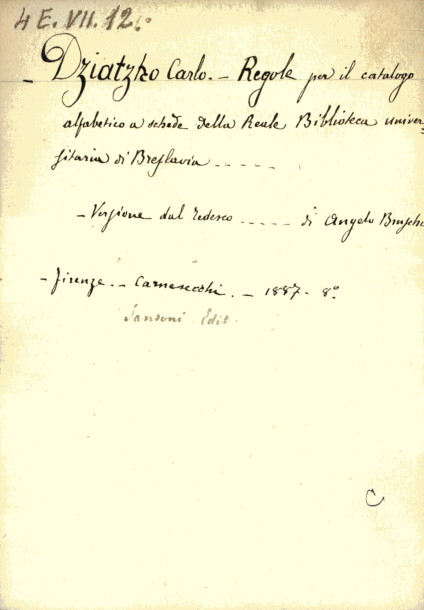 4 E. VII. 12.
- Dziatzko Carlo. - Regole per il catalogo
alfabetico a schede della Reale Biblioteca univer-
sitaria di Breslavia - - - - -
- Versione dal tedesco - - - - - di Angelo
- Firenze. - Carnesecchi. - 1887. 8º
Sansoni Edit.
C